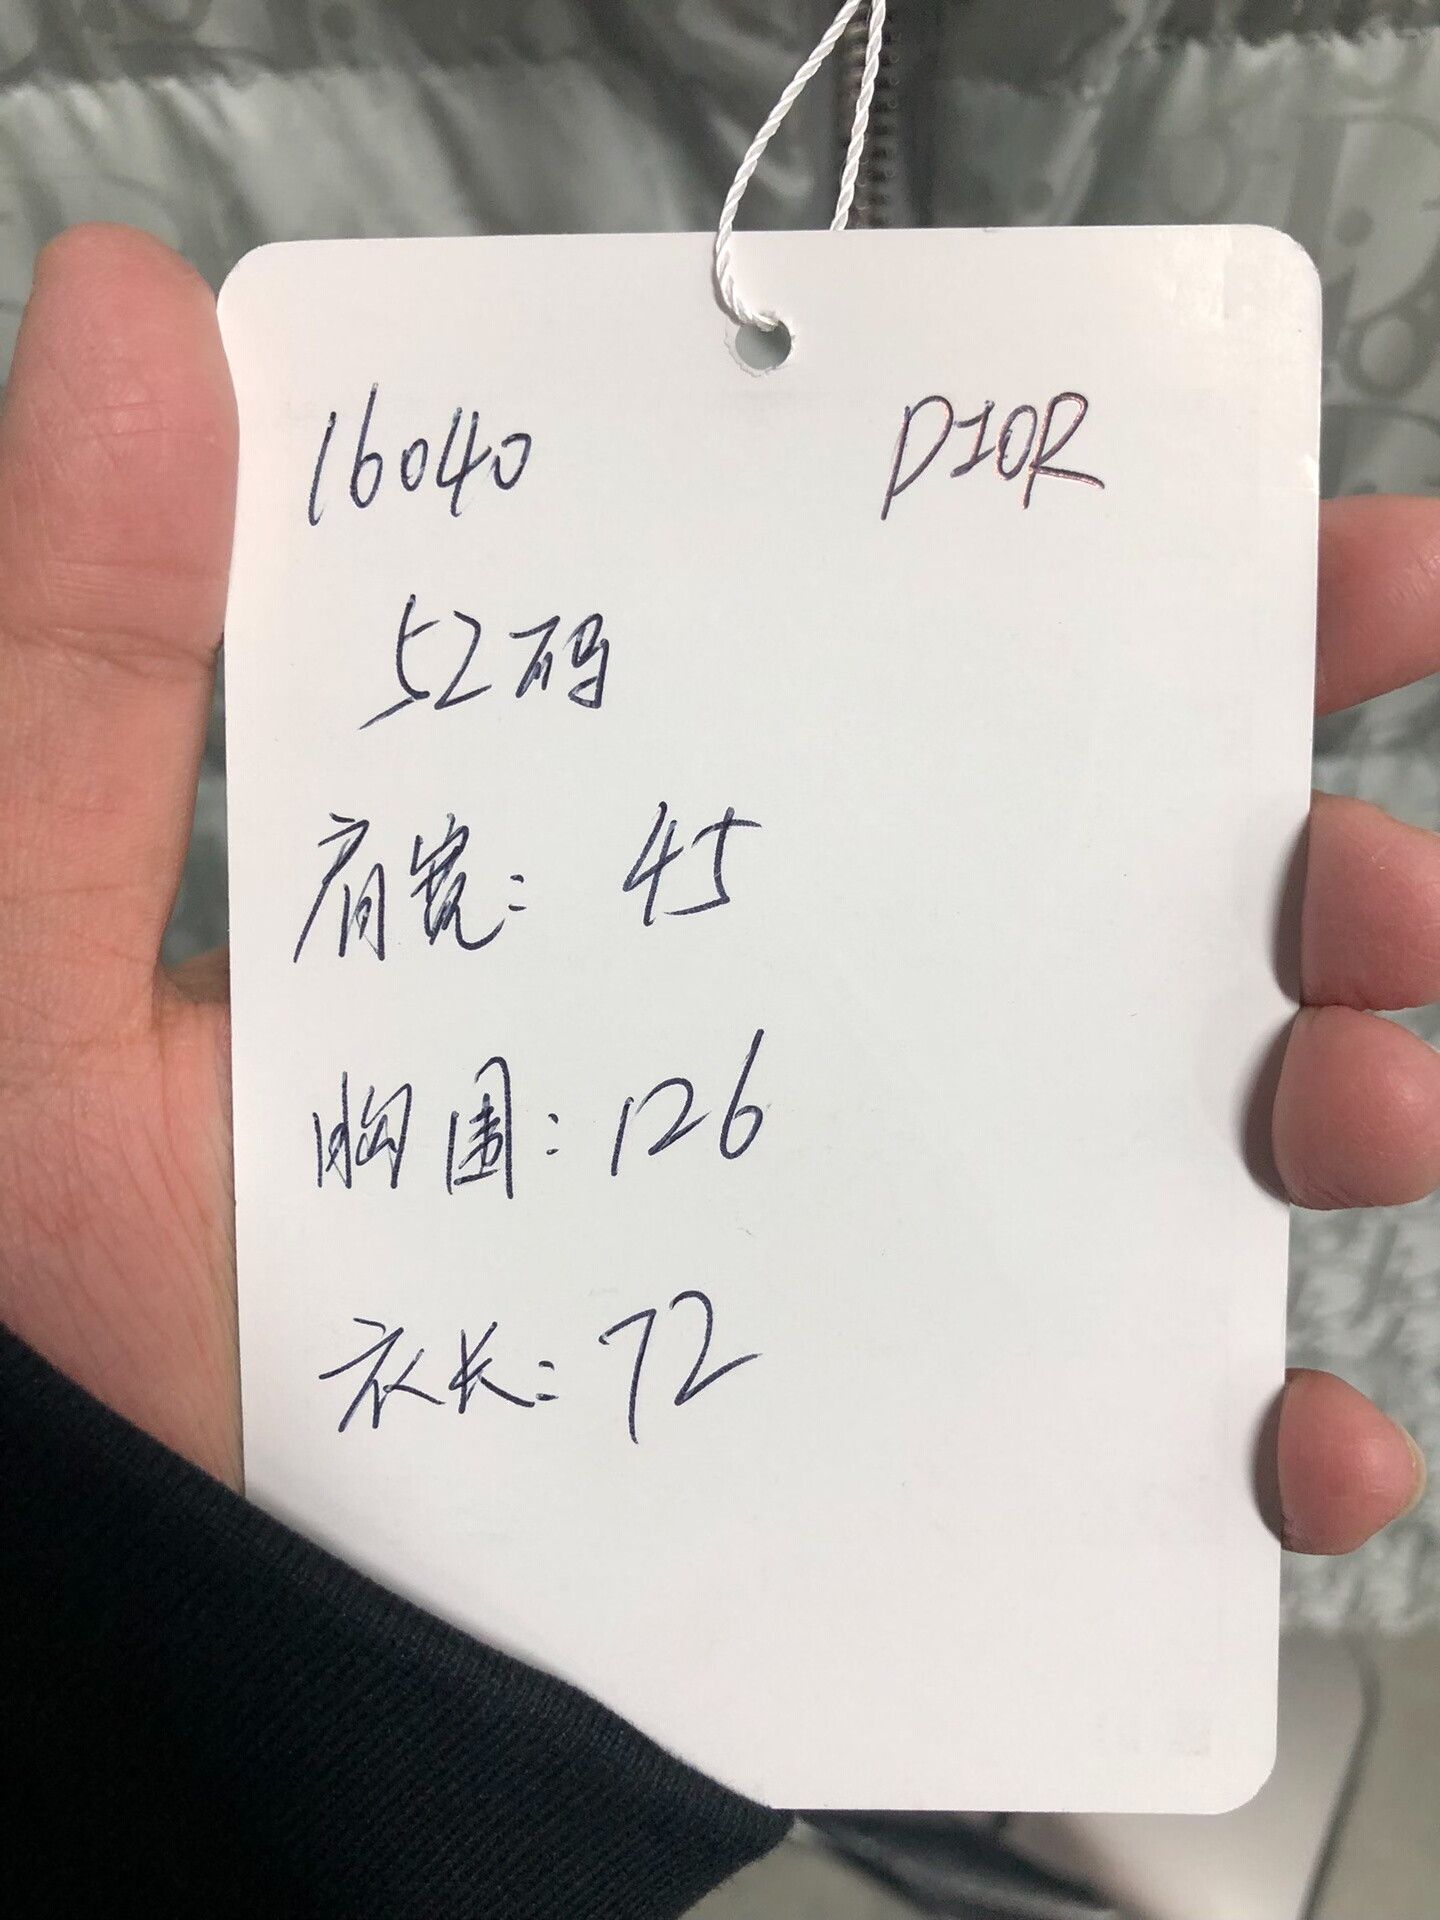 16040 DIOR
52码
肩宽: 45
胸围: 126
衣长: 72